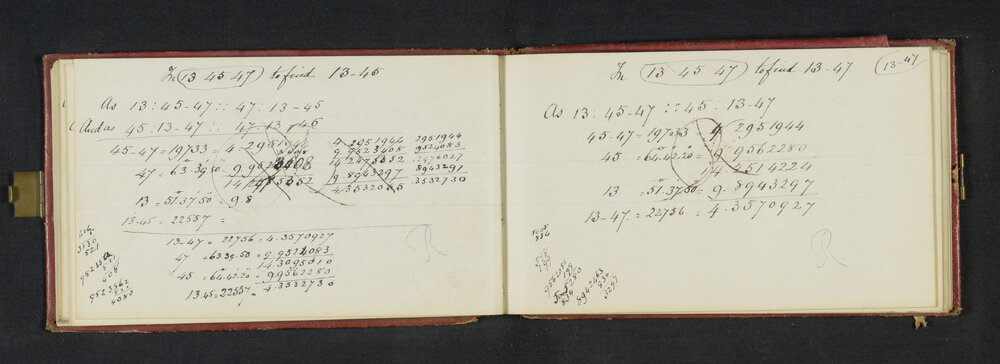 In (13 45 47) to find 13-45
As 13 : 45-47 :: 47 : 13-45
And as 45 : 13-47 :: 47 13 45
45-47 = 19733 = 4.2951944
47 = 63.39.50 =
13 = 51.37.50 = 9.8
13-45 = 22557 =
4.2951944
9.9523408
14.2475352
9.8943297
4.3532055
2951944
9524083
2476027
8943291
3532730
13-47 = 22756 = 4.3570927
47 = 63.39.50 = 9.9524083
14.3095010
45 = 64.42.20 = 9.9562280
13.45 = 22557 = 4.3532730
9523562
521
4083
In (13 45 47) to find 13-47
(13-47)
As 13 : 45-47 :: 45 : 13-47
45-47 = 19733 = 4.2951944
45 = 64.42.20 = 9.9562280
14.2514224
13 = 51.37.50 = 9.8943297
13-47 = 22756 = 4.3570927
R
R